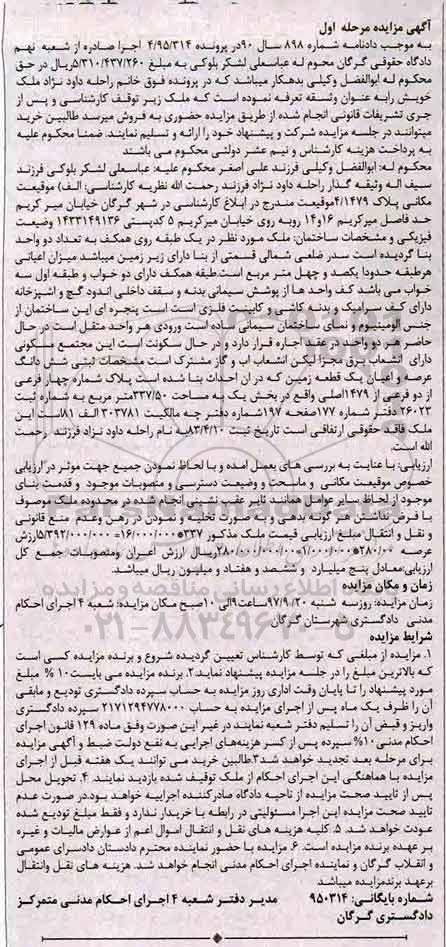 آگهی مزایده مرحله اول
به موجب دادنامه شماره ۸۹۸ سال ۹۰در پرونده ۴/۹۵/۳۱۴ اجرا صادره از شعبه نهم
دادگاه حقوقی گرگان محکوم له عباسعلی لشکر بلوکی به مبلغ ۵/۳۱۰/۴۳۷/۲۶۰ریال در حق
محکوم له ابوالفضل وکیلی بدهکار میباشد که در پرونده فوق خانم راحله داود نژاد ملک
خویش رابه عنوان وثیقه تعرفه نموده است که ملک زیر توقف کارشناسی و پس از
جری تشریفات قانونی انجام شده از طریق مزایده حضوری به فروش میرسد طالبین خرید
میتوانند در جلسه مزایده شرکت و پیشنهاد خود را ارائه و تسلیم نمایند. ضمنا محکوم علیه
به پرداخت هزینه کارشناس و نیم عشر دولتی محکوم می باشند
محکوم له: ابوالفضل وکیلی فرزند علی اصغر محکوم علیه: عباسعلی لشکر بلوکی فرزند
سیف اله وثیقه گذار راحله داود نژاد فرزند رحمت الله نظریه کارشناسی: الف) موقعیت
مکانی پلاک ۴/۱۴۷۹موقعیت مندرج در ابلاغ کارشناسی در شهر گرگان خیابان میر کریم
حد فاصل میرکریم ۱۶و۱۴ روبه روی خیابان میرکریم ۵ کدپستی ۱۴۳۳۱۴۹۱۳۶ وضعیت
فیزیکی و مشخصات ساختمان: ملک مورد نظر در یک طبقه روی همکف به تعداد دو واحد
بنا گردیده است سدر ضلعی شمالی قسمتی از بنا دارای زیر زمین میباشد میزان اعیانی
هرطبقه حدودا یکصد و چهل متر مربع است.طبقه همکف دارای دو خواب و طبقه اول سه
خواب می باشد کف واحد ها از پوشش سیمانی بدنه و سقف داخلی اندود گچ و اشپزخانه
دارای کف سرامیک و بدنه کاشی و کابینت فلزی است است پنجره ای این ساختمان از
جنس آلومینیوم و نمای ساختمان سیمانی ساده است ورودی هر واحد متقل است در حال
حاضر هر دو واحد در عقد اجاره قرار دارد و در حال سکونت است این مجتمع مسکونی
دارای انشعاب برق مجزا لیکن انشعاب اب و گاز مشترک است مشخصات ثبتی شش دانگ
عرصه و اعیان یک قطعه زمین که در ان احداث بنا شده است پلاک شماره چهار فرعی
از دو فرعی از ۱۴۷۹اصلی واقع در بخش یک به مساحت ۳۳۷/۵۰متر مربع به شماره ثبت
۲۶۰۲۳ دفتر شماره ۱۷۷صفحه ۱۹۷شماره دفتر چه مالکیت ۳۰۳۷۸۱ الف ۸۱است این
ملک فاقد حقوقی ارتفاقی است تاریخ ثبت ۸۳/۴/۱۰به نام راحله داود نژاد فرزند رحمت
الله است.
ارزیابی: با عنایت به بررسی های بعمل امده و با لحاظ نمودن جمیع جهت موثر در ارزیابی
خصوص موقعیت مکانی و ماسحت و وضعیت دسترسی و منصوبات موجود و قدمت بنای
موجود از لحاظ سایر عوامل همانند تاثیر عقب نشینی انجام شده در محدوده ملک موصوف
با فرض نداشتن هر گونه بدهی و به صورت تخلیه و نمودن در رهن وعدم منع قانونی
و نقل و انتقال مبلغ ارزیابی قیمت ملک مذکور ۳۳۷*۱۶/۰۰۰/۰۰۰=۵/۳۹۲/۰۰۰/۰۰۰ارزش
عرصه ۲۸۰/۰۰*۱/۰۰۰/۰۰۰=۲۸۰/۰۰۰/۰۰۰ریال ارزش اعیان ومنصوبات جمع کل
ارزیابی:معادل پنج میلیارد و ششصد و هفتاد و میلیون ریال میباشد.
زمان و مکان مزایده
زمان مزایده: روزسه شنبه ۹۷/۹/۲۰ساعت۹الی ۱۰صبح مکان مزایده: شعبه ۴ اجرای احکام
مدنی دادگستری شهرستان گرگان
شرایط مزایده
۱. مزایده از مبلغی که توسط کارشناس تعیین گردیده شروع و برنده مزایده کسی است
که بالاترین مبلغ را در جلسه مزایده پیشنهاد نماید۲. برنده مزایده می بایست ۱۰ % مبلغ
مورد پیشنهاد را تا پایان وقت اداری روز مزایده به حساب سپرده دادگستری تودیع و مابقی
آن را ظرف یک ماه پس از اجرای مزایده به حساب ۲۱۷۱۲۹۴۷۷۸۰۰۰ سپرده دادگستری
واریز و قبض آن را تسلیم دفتر شعبه نمایند در غیر این صورت وفق ماده ۱۲۹ قانون اجرای
احکام مدنی ۱۰% سپرده پس از کسر هزینه‌های اجرایی به نفع دولت ضبط و آگهی مزایده
برای مرحله بعد تجدید خواهد شد ۳.طالبین خرید می توانند یک هفته قبل از اجرای
مزایده با هماهنگی این اجرای احکام از ملک توقیف شده بازدید نمایند ۴. تحویل محل
پس از تایید صحت مزایده از ناحیه دادگاه صادرکننده اجراییه خواهد بود.در صورت عدم
تایید صحت مزایده این اجرا مسئولیتی در رابطه با خریدار ندارد و فقط مبلغ تودیع شده
عودت خواهد شد. ۵. کلیه هزینه های نقل و انتقال اموال اعم از عوارض مالیات و غیره
بر عهده برنده مزایده است. ۶. مزایده با حضور نماینده محترم دادستان دادسرای عمومی
و انقلاب گرگان و نماینده اجرای احکام مدنی انجام خواهد شد. هزینه های نقل وانتقال
برعهد برنده‌مزایده میباشد
شماره بایگانی: ۹۵۰۳۱۴ مدیر دفتر شعبه ۴ اجرای احکام مدنی متمرکز
دادگستری گرگان